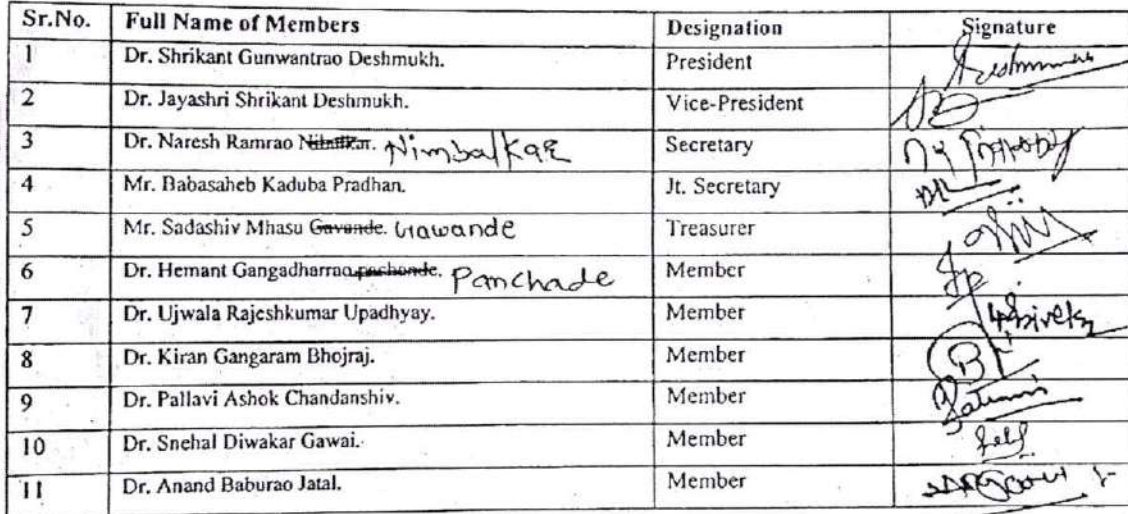 Sr.No. Full Name of Members Designation Signature
1 Dr. Shrikant Gunwantrao Deshmukh. President Deshmukh
2 Dr. Jayashri Shrikant Deshmukh. Vice-President
3 Dr. Naresh Ramrao Nimbalkar Secretary
4 Mr. Babasaheb Kaduba Pradhan. Jt. Secretary
5 Mr. Sadashiv Mhasu Gavande. Gawande Treasurer
6 Dr. Hemant Gangadharrao pachonde. Panchade Member
7 Dr. Ujwala Rajeshkumar Upadhyay. Member
8 Dr. Kiran Gangaram Bhojraj. Member
9 Dr. Pallavi Ashok Chandanshiv. Member
10 Dr. Snehal Diwakar Gawai. Member
11 Dr. Anand Baburao Jatal. Member